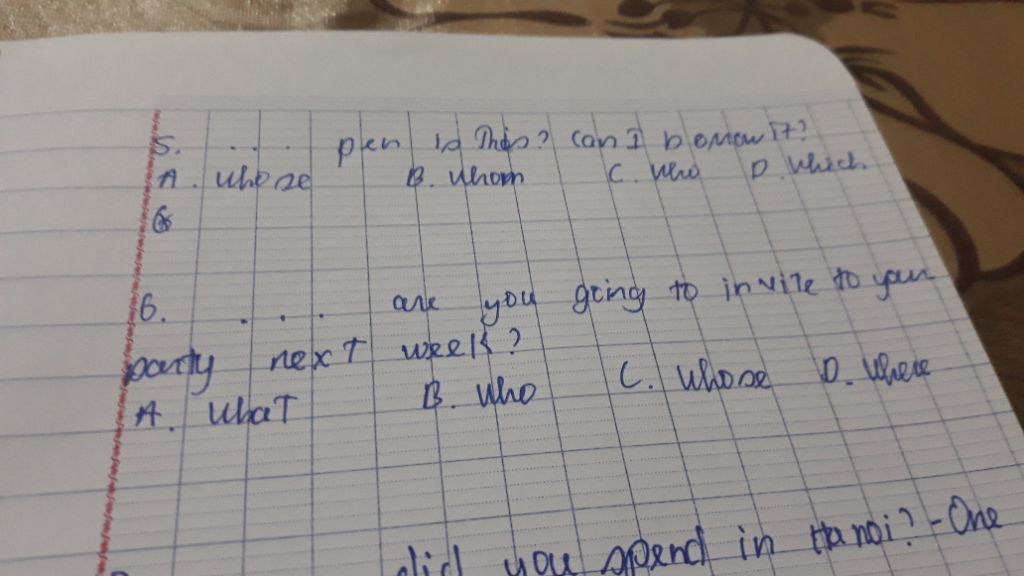 5. .... pen is this? Can I borrow it?
A. Whose B. Whom C. Who D. Which
6
6. .... are you going to invite to your
party next week?
A. What B. Who C. Whose D. Where
did you spend in Hanoi? - One